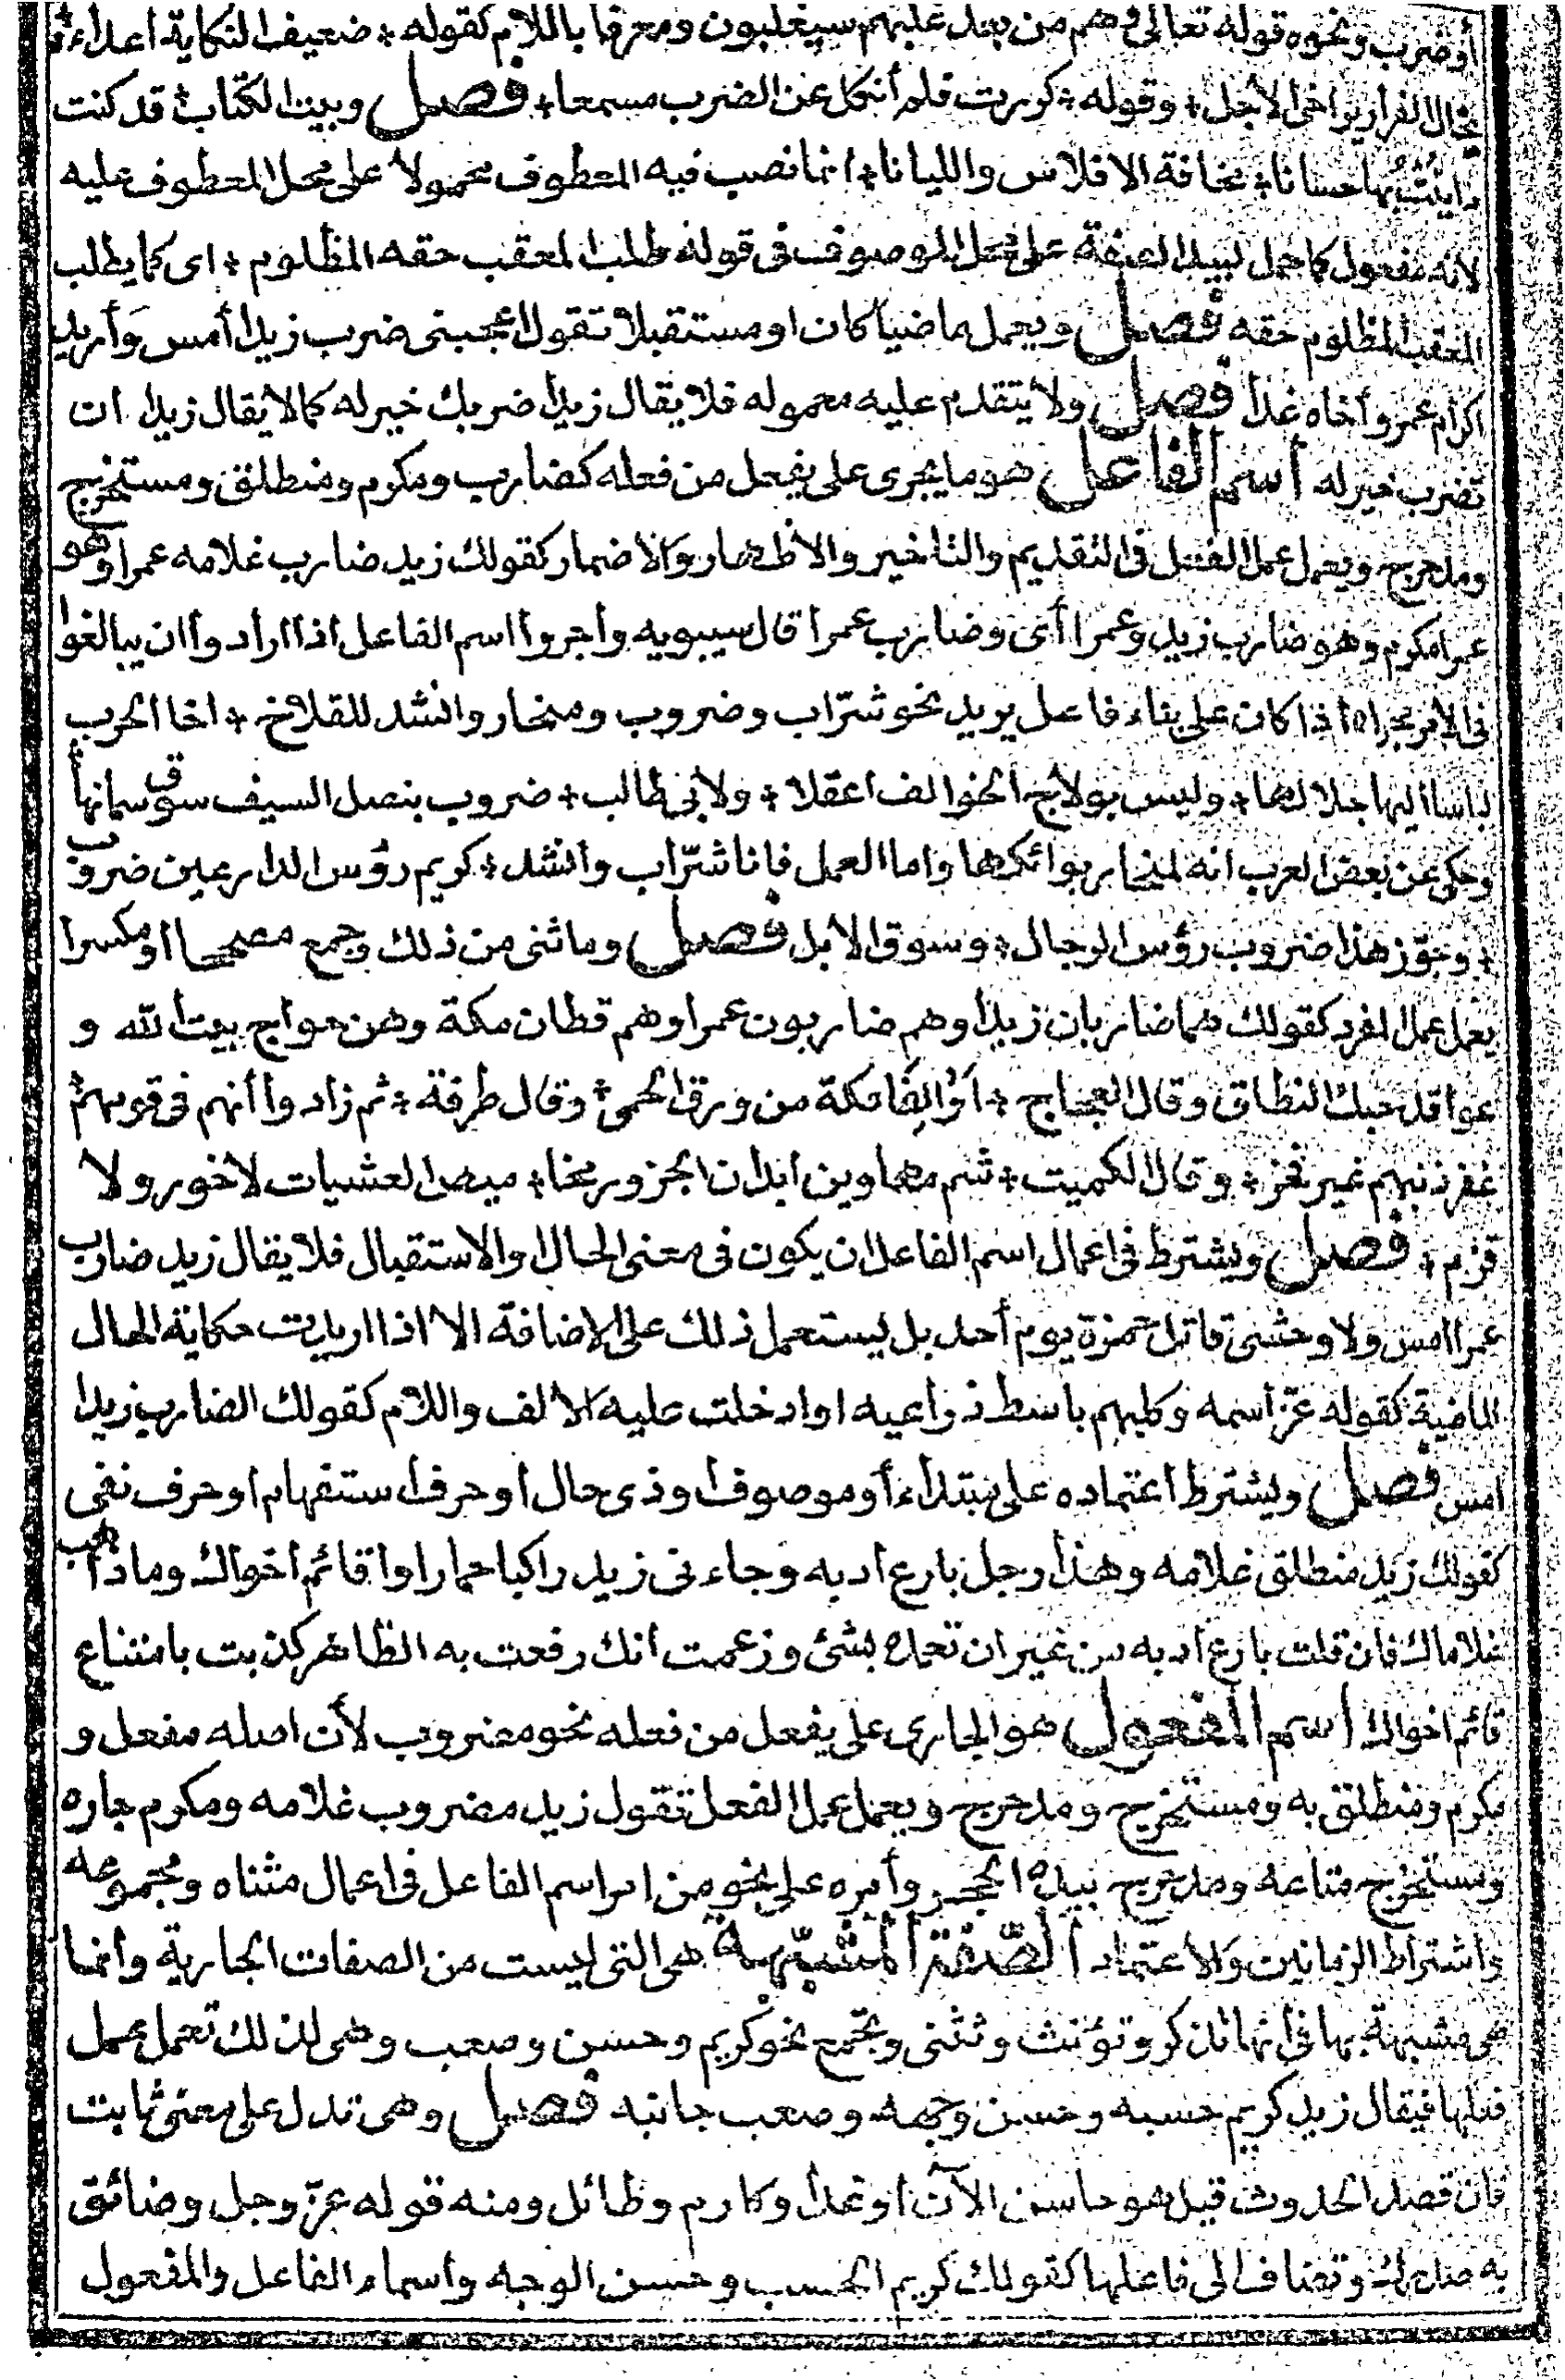 أو ضرب ونحوه قوله تعالى وهم من بعد غلبهم سيغلبون ومعرفا باللام كقوله ۞ ضعيف النكاية اعداءه ۞
يخال الفرار يراخى الأجل ۞ وقوله ۞ كررت فلم أنكل عن الضرب مسمعا ۞ فصل وبيت الكتاب ۞ قد كنت
داينتُ بها حسانا ۞ مخافة الافلاس والليانا ۞ انما نصب فيه المعطوف محمولا على محل المعطوف عليه
لأنه مفعول كما حمل لبيد الصفة على محل الموصوف فى قوله ۞ طلب المعقب حقه المظلوم ۞ اى كما يطلب
المعقب المظلوم حقه فصل ويعمل ماضيا كان او مستقبلا تقول اعجبنى ضرب زيدا أمس وأريد
اكرام عمرو أخاه غدا فصل ولا يتقدم عليه معموله فلا يقال زيدا ضربك خير له كما لا يقال زيدا ان
تضرب خير له اسم الفاعل هو ما يجرى على يفعل من فعله كضارب ومكرم ومنطلق ومستخرج
ومدحرج ويعمل عمل الفعل فى التقديم والتاخير والاظهار والاضمار كقولك زيد ضارب غلامه عمرا وهو
عمرا مكرم وهو ضارب زيد وعمرا أى وضارب عمرا قال سيبويه وأجروا اسم الفاعل اذا ارادوا ان يبالغوا
فى الامر مجراه اذا كان على بناء فاعل يريد نحو شرّاب وضروب ومنحار وانشد للقلاخ ۞ اخا الحرب
لباسا اليها جلالها ۞ وليس بولاج الخوالف اعقلا ۞ ولابى طالب ۞ ضروب بنصل السيف سوق سمانها ۞
وحكى عن بعض العرب انه لمنحار بوائكها واما العسل فانا شرّاب وانشد ۞ كريم رؤس الدارعين ضروب
۞ وجوّز هذا ضروب رؤس الرجال ۞ وسوق الابل فصل وما ثنى من ذلك وجمع مصححا او مكسرا
يعمل عمل المفرد كقولك هما ضاربان زيدا وهم ضاربون عمرا وهم قطان مكة وهن حواج بيت الله و
عواقد حبك النطاق وقال العجاج ۞ أوالفا مكة من ورق الحمى ۞ وقال طرفة ۞ ثم زادوا أنهم فى قومهم ۞
غفر ذنبهم غير فخر ۞ وقال الكميت ۞ شم مهاوين ابدان الجزور مخا ۞ ميص العشيات لا خور ولا
قزم ۞ فصل ويشترط فى اعمال اسم الفاعل ان يكون فى معنى الحال او الاستقبال فلا يقال زيد ضارب
عمرا امس ولا وحشى قاتل حمزة يوم أحد بل يستعمل ذلك على الاضافة الا اذا اريدت حكاية الحال
الماضية كقوله عزّ اسمه وكلبهم باسط ذراعيه او ادخلت عليه الالف واللام كقولك الضارب زيدا
امس فصل ويشترط اعتماده على مبتداء أو موصوف او ذى حال او حرف استفهام او حرف نفى
كقولك زيد منطلق غلامه وهذا رجل بارع ادبه وجاءنى زيد راكبا حمارا واقائم اخواك وما ذاهب
غلاماك فان قلت بارع ادبه من غير ان تعمده بشئ وزعمت انك رفعت به الظاهر كذبت بامتناع
قائم اخواك اسم المفعول هو الجارى على يفعل من فعله نحو مضروب لأن اصله مفعل و
مكرم ومنطلق به ومستخرج ومدحرج ويعمل عمل الفعل تقول زيد مضروب غلامه ومكرم جاره
ومستخرج متاعه ومدحرج بيده الحجر وأمره على نحو من امر اسم الفاعل فى اعمال مثناه ومجموعه
واشتراط الزمانين والاعتماد الصّفة المشبّهة هى التى ليست من الصفات الجارية وانما
هى مشبهة بها فى انها تذكر وتؤنث وتثنى وتجمع نحو كريم وحسن وصعب وهى لذلك تعمل عمل
فعلها فيقال زيد كريم حسبه وحسن وجهه وصعب جانبه فصل وهى تدل على معنى ثابت
فان قصد الحدوث قيل هو حاسن الآن او غدا وكارم وطائل ومنه قوله عزّ وجل وضائق
به صدرك وتضاف الى فاعلها كقولك كريم الحسب وحسن الوجه واسماء الفاعل والمفعول